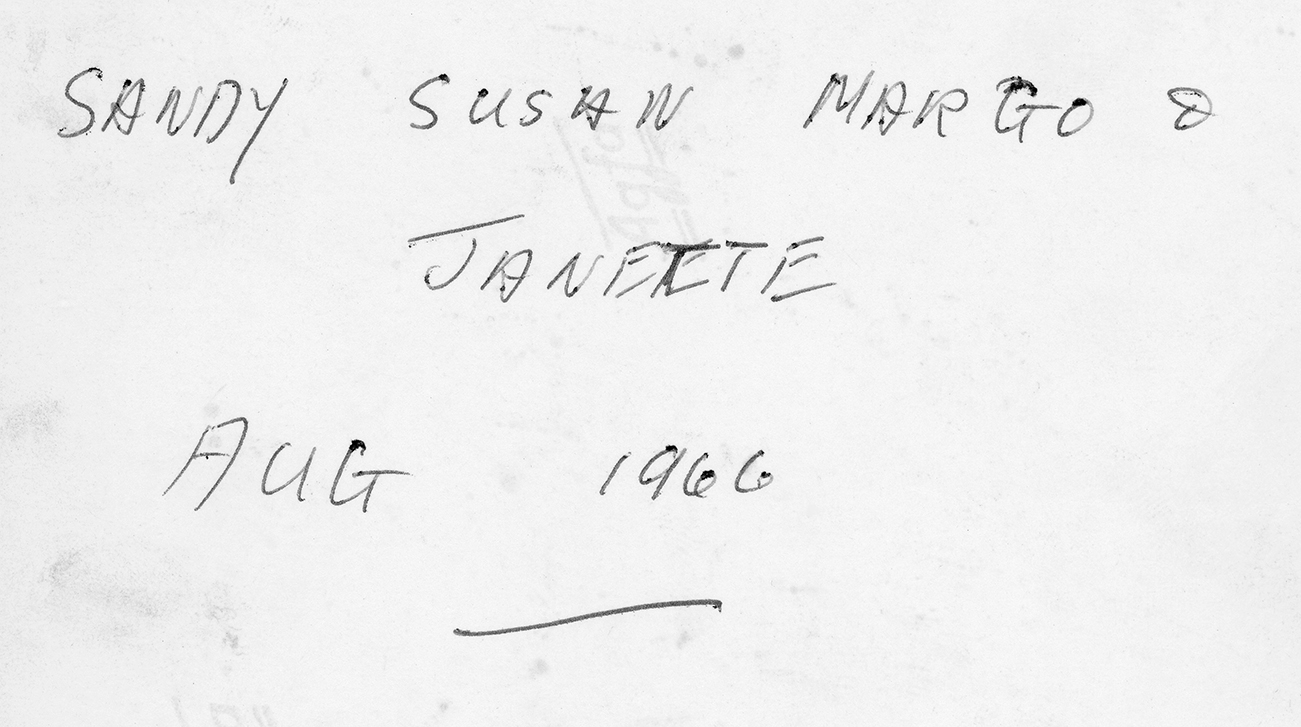 SANDY SUSAN MARGO &
JANETTE
AUG 1966